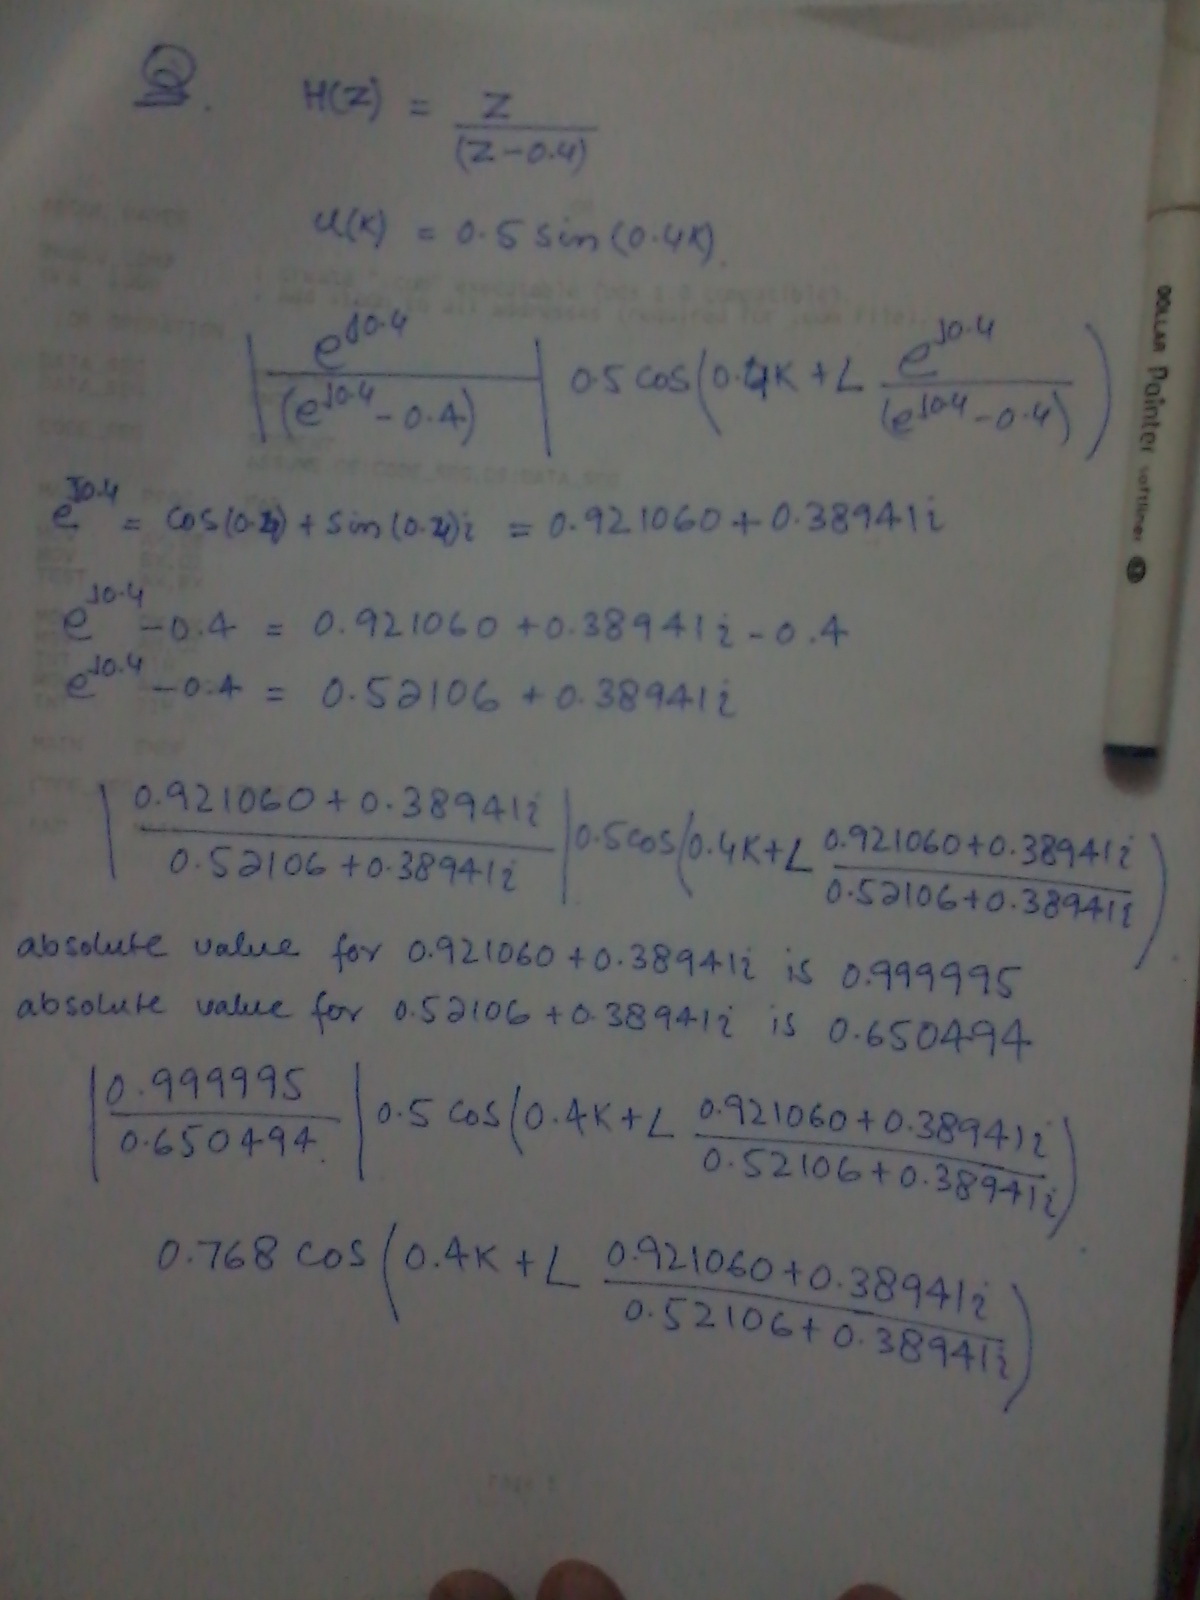 Q. H(Z) = Z / (Z-0.4)
u(K) = 0.5 sin(0.4K)
| e^j0.4 / (e^j0.4 - 0.4) | 0.5 cos(0.4K + ∠ e^j0.4 / (e^j0.4 - 0.4))
e^j0.4 = cos(0.4) + sin(0.4)i = 0.921060 + 0.38941i
e^j0.4 - 0.4 = 0.921060 + 0.38941i - 0.4
e^j0.4 - 0.4 = 0.52106 + 0.38941i
| 0.921060 + 0.38941i / 0.52106 + 0.38941i | 0.5 cos(0.4K + ∠ 0.921060 + 0.38941i / 0.52106 + 0.38941i)
absolute value for 0.921060 + 0.38941i is 0.999995
absolute value for 0.52106 + 0.38941i is 0.650494
| 0.999995 / 0.650494 | 0.5 cos(0.4K + ∠ 0.921060 + 0.38941i / 0.52106 + 0.38941i)
0.768 cos(0.4K + ∠ 0.921060 + 0.38941i / 0.52106 + 0.38941i)
DOLLAR Pointer softliner